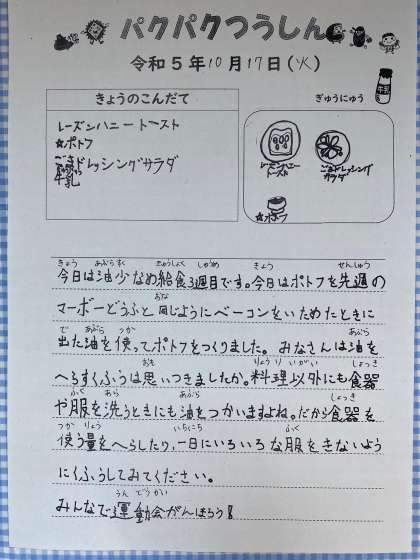 パクパクつうしん
令和5年10月17日(火)
牛乳
きょうのこんだて
レーズンハニートースト
☆ポトフ
ごまドレッシングサラダ
牛乳
ぎゅうにゅう
レーズンハニートースト
ごまドレッシングサラダ
☆ポトフ
今日は油少なめ給食3週目です。今日はポトフを先週の
マーボーどうふと同じようにベーコンをいためたときに
出た油を使ってポトフをつくりました。みなさんは油を
へらすくふうは思いつきましたか。料理以外にも食器
や服を洗うときにも油をつかいますよね。だから食器を
使う量をへらしたり、一日にいろいろな服をきないよう
にくふうしてみてください。
みんなで運動会がんばろう!